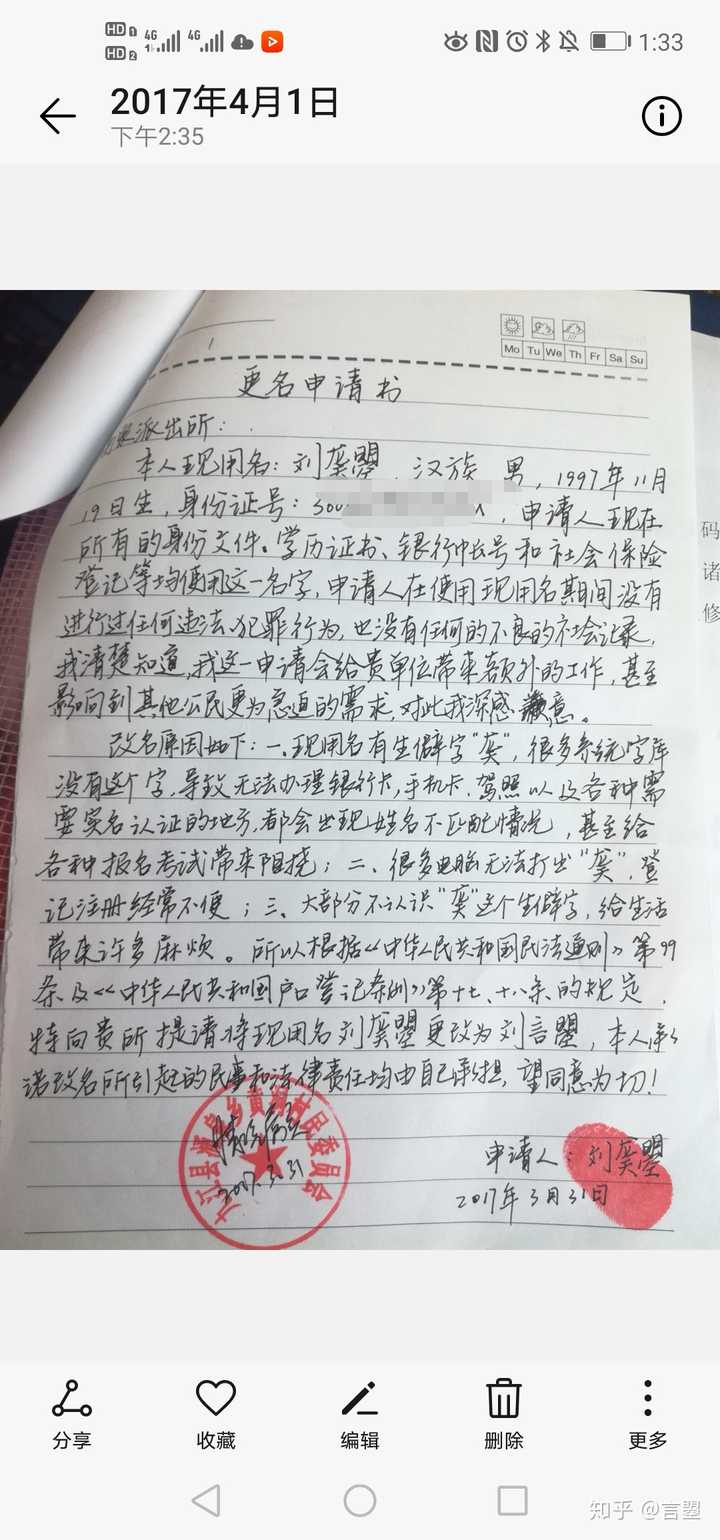 HD 1 4G 4G 1:33
HD 2
2017年4月1日
下午2:35
Mo Tu We Th Fr Sa Su
更名申请书
派出所：
本人现用名：刘䶮曌，汉族 男，1997年11月
19日生，身份证号：500，申请人现在
所有的身份文件。学历证书、银行帐号和社会保险
登记等均使用这一名字，申请人在使用现用名期间没有
进行过任何违法、犯罪行为，也没有任何的不良的社会记录，
我清楚知道，我这一申请会给贵单位带来额外的工作，甚至
影响到其他公民更为急迫的需求，对此我深感歉意。
改名原因如下：一、现用名有生僻字“䶮”，很多系统字库
没有这个字，导致无法办理银行卡，手机卡，驾照以及各种需
要实名认证的地方，都会出现姓名不匹配情况，甚至给
各种报名考试带来阻挠；二、很多电脑无法打出“䶮”，登
记注册经常不便；三、大部分不认识“䶮”这个生僻字，给生活
带来许多麻烦。所以根据《中华人民共和国民法通则》第99
条及《中华人民共和国户口登记条例》第十七、十八条的规定，
特向贵所提请将现用名刘䶮曌更改为刘言曌，本人承
诺改名所引起的民事和法律责任均由自己承担，望同意为切！
江县 乡黄 村民委员会
2017.3.31
申请人：刘䶮曌
2017年3月31日
码
诸
修
分享 收藏 编辑 删除 更多
知乎 @言曌